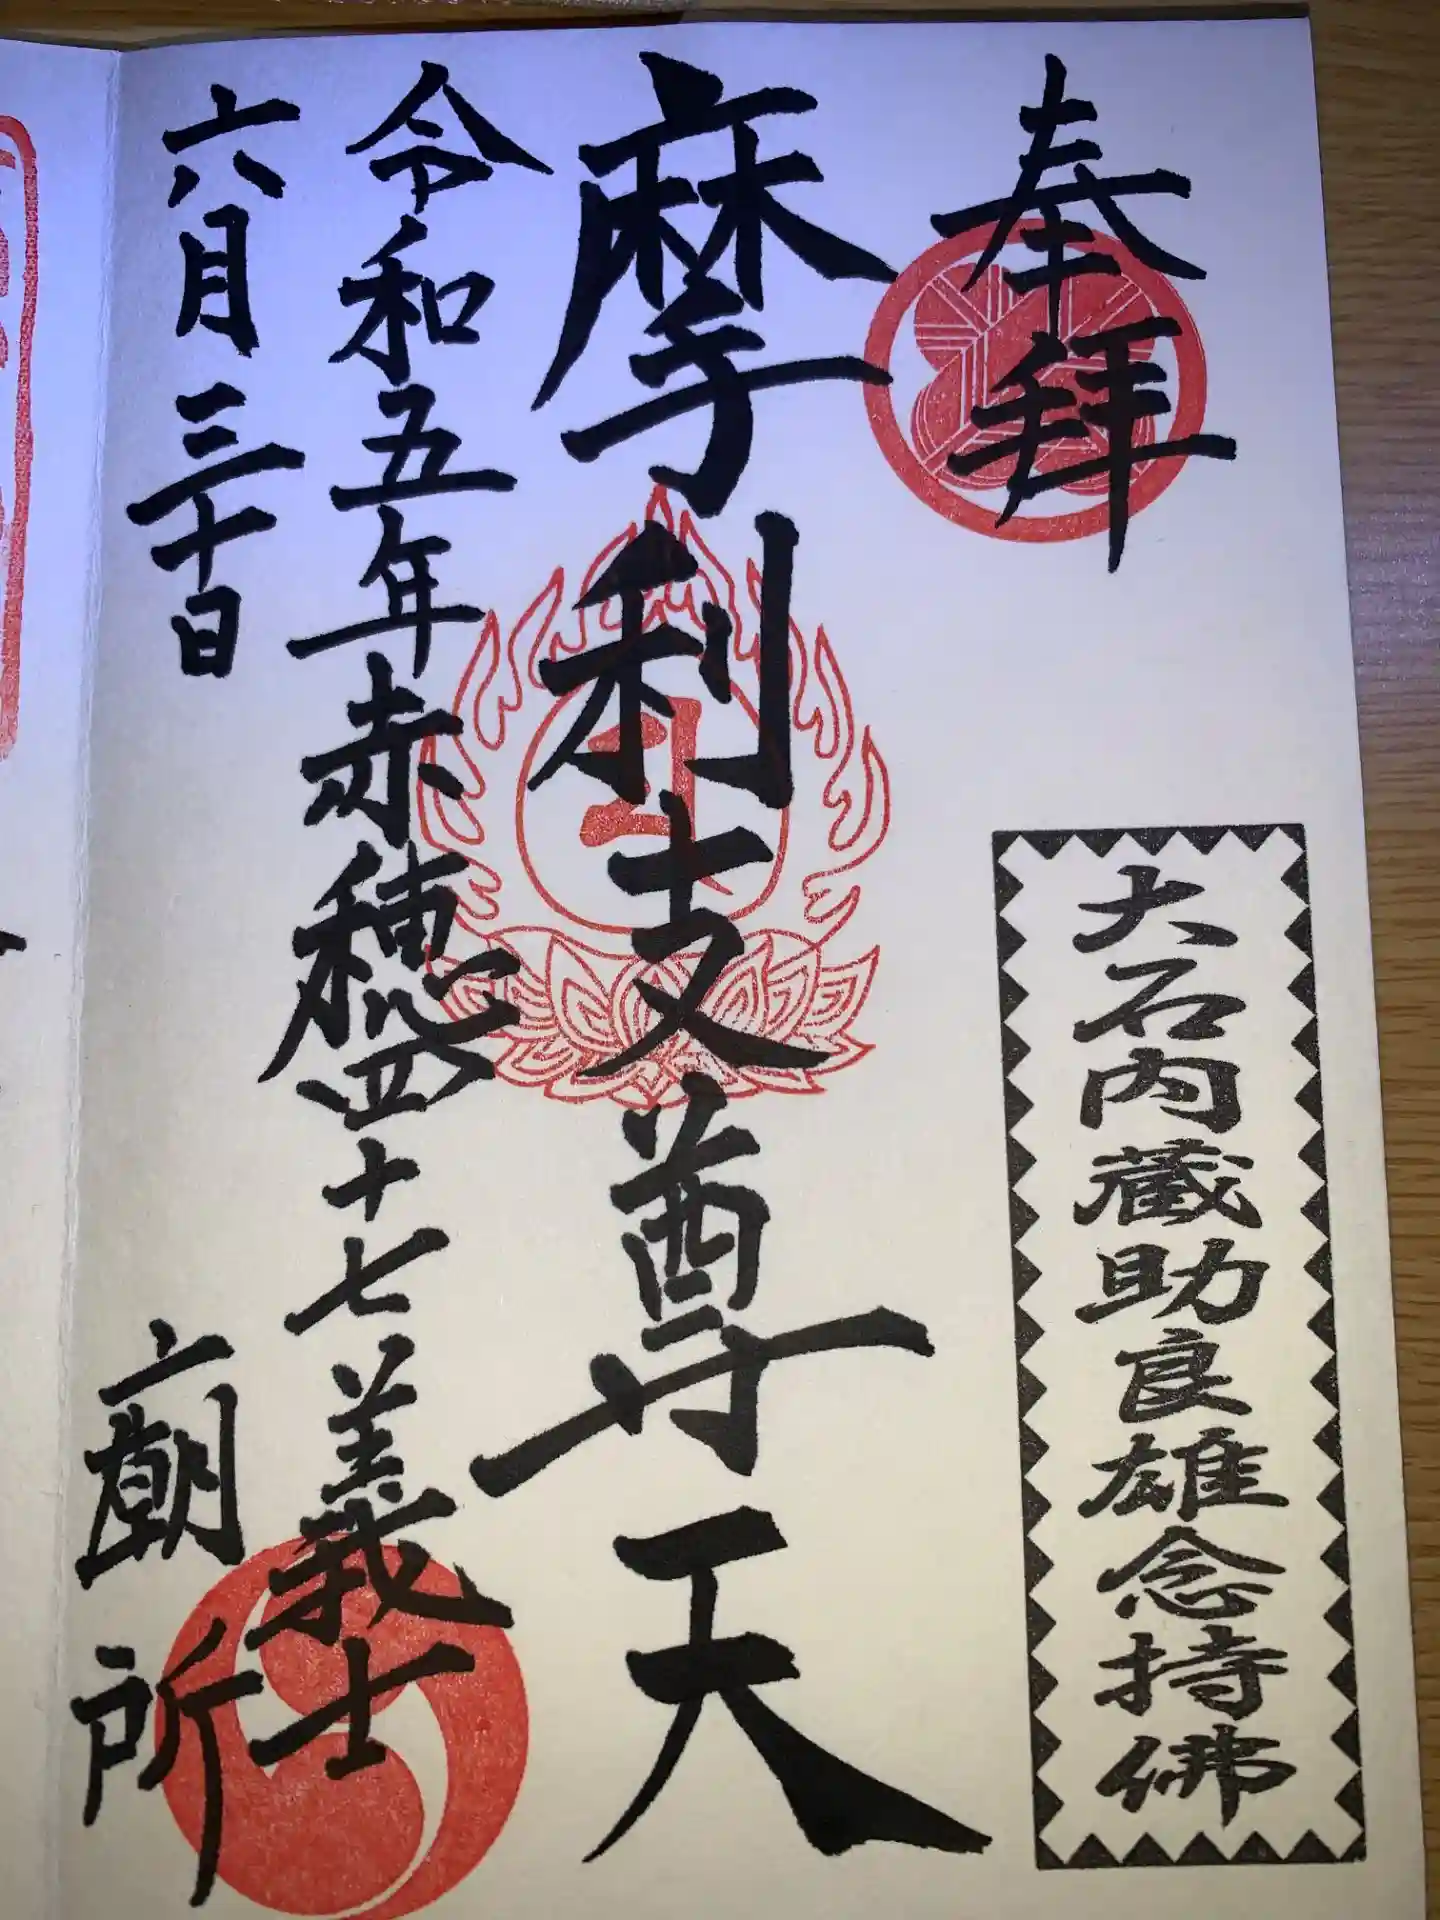 奉拝
大石内蔵助良雄念持佛
摩利支尊天
令和五年赤穂四十七義士
六月三十日
廟所